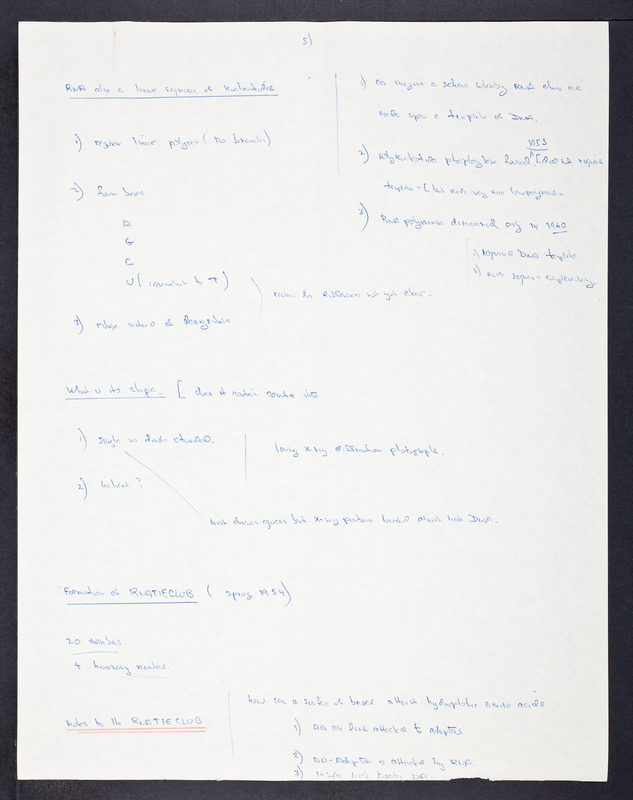 5)
RNA also a linear sequence of nucleotides
1) regular linear polymer (No branches)
2) four bases
A
G
C
U (equivalent to T)
reason for differences not yet clear.
3) ribose instead of deoxyribose
1) can imagine a scheme whereby RNA chains are
made upon a template of DNA.
1955
2) polynucleotide phosphorylase found [does not require
template - [but made very nice homopolymers.
3) RNA polymerase discovered only in 1960
1) required DNA template.
2) made sequence complementary
What is its shape - [ does it contain genetic info
1) single vs double stranded
lousy x-ray diffraction photographs.
2) helical?
must chains guess but x-ray pictures looked almost like DNA.
Formation of RNATIECLUB (spring 1954)
20 members.
4 honorary members.
Notes to the RNATIECLUB
how can a series of bases attract hydrophobic amino acids
1) AA are first attached to adaptors
2) AA-Adaptor is attracted by RNA.
3)